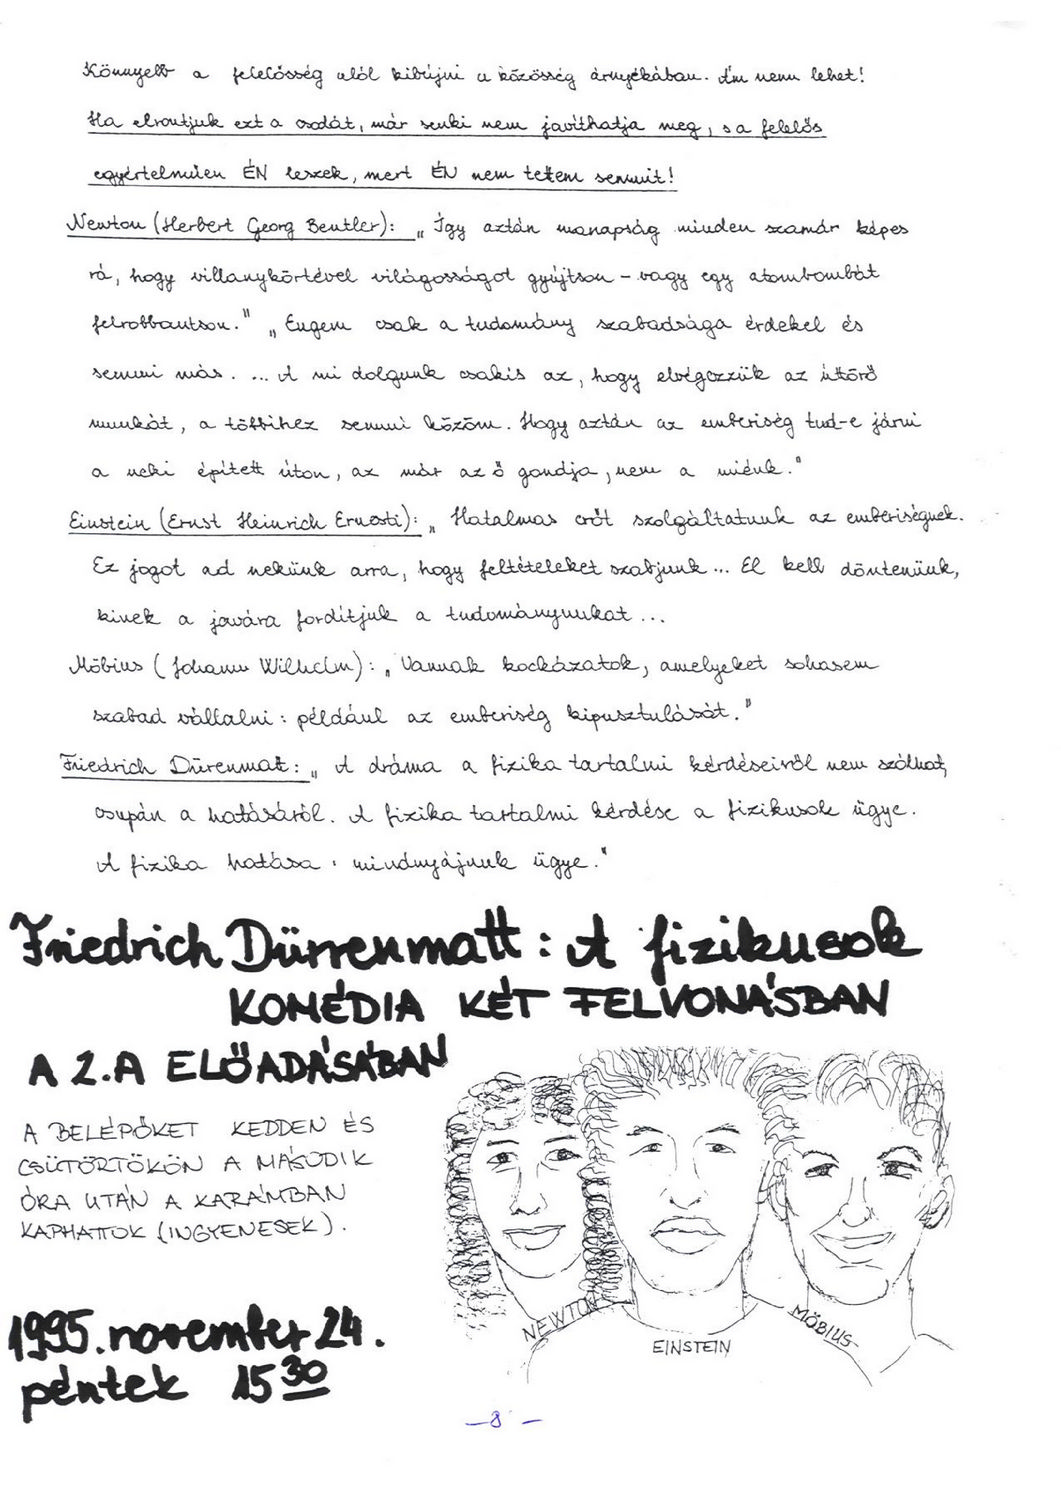 Könnyebb a felelősség alól kibújni a közösség árnyékában. Ám nem lehet!
Ha elrontjuk ezt a csodát, már senki nem javíthatja meg, s a felelős
egyértelműen ÉN leszek, mert ÉN nem tettem semmit!
Newton (Herbert Georg Beutler): „Így aztán manapság minden szamár képes
rá, hogy villanykörtével világosságot gyújtson – vagy egy atombombát
felrobbantson." „Engem csak a tudomány szabadsága érdekel és
semmi más. ... A mi dolgunk csakis az, hogy elvégezzük az úttörő
munkát, a többihez semmi közöm. Hogy aztán az emberiség tud-e járni
a neki épített úton, az már az ő gondja, nem a miénk."
Einstein (Ernst Heinrich Ernesti): „Hatalmas erőt szolgáltatunk az emberiségnek.
Ez jogot ad nekünk arra, hogy feltételeket szabjunk... El kell döntenünk,
kinek a javára fordítjuk a tudományunkat...
Möbius (Johann Wilhelm): „Vannak kockázatok, amelyeket sohasem
szabad vállalni: például az emberiség kipusztulását."
Friedrich Dürenmat: „A dráma a fizika tartalmi kérdéseiről nem szólhat,
csupán a hatásáról. A fizika tartalmi kérdése a fizikusok ügye.
A fizika hatása: mindnyájunk ügye."
Friedrich Dürrenmatt: A fizikusok
KOMÉDIA KÉT FELVONÁSBAN
A 2.A ELŐADÁSÁBAN
A BELÉPŐKET KEDDEN ÉS
CSÜTÖRTÖKÖN A MÁSODIK
ÓRA UTÁN A KARÁMBAN
KAPHATTOK (INGYENESEK).
1995. november 24.
péntek 15 30
NEWTON
EINSTEIN
MÖBIUS
– 8 –